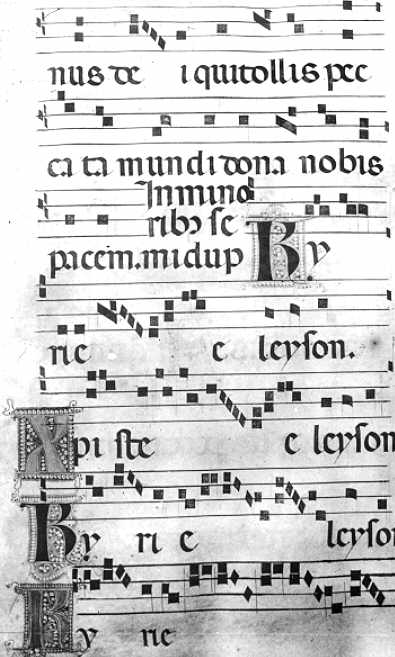 nus de i qui tollis pec
ca ta mundi dona nobis
In mino
ribꝫ fe
pacem. mi dup Ky
rie e leyson.
Xpi ste e leyson
Ky ri e leyson
Ky rie